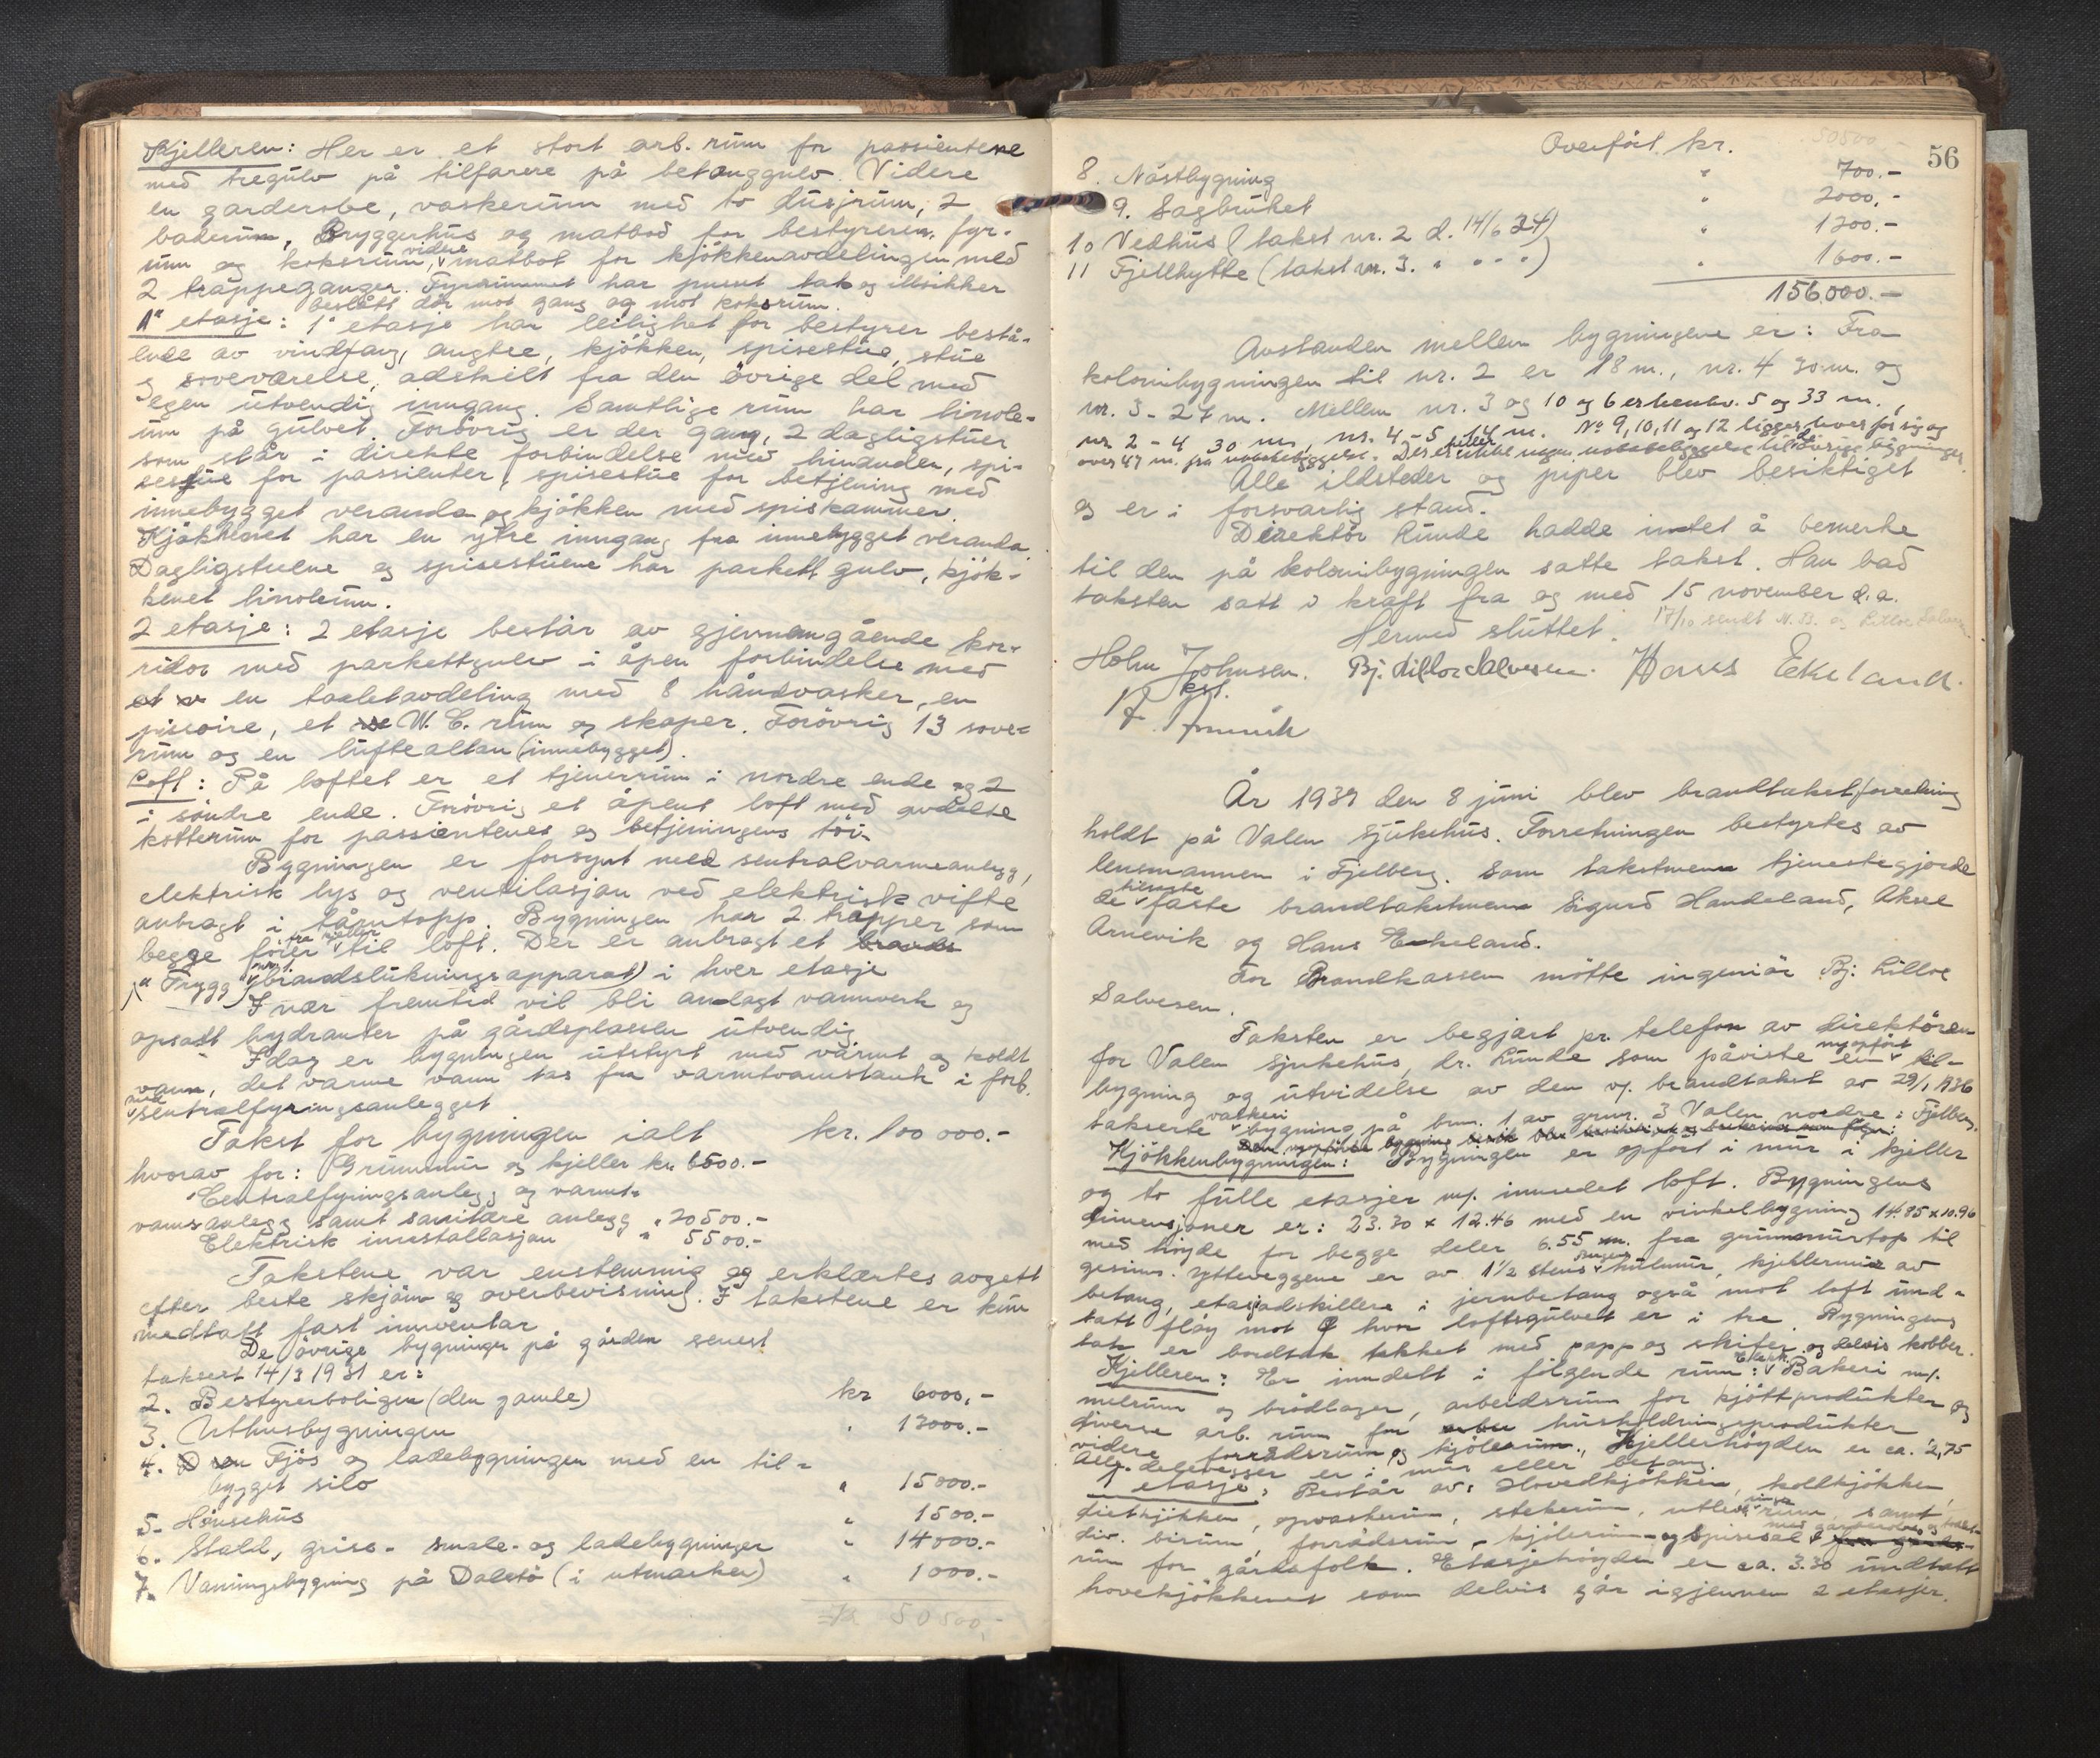 Kjelleren: Her er et stort arb. rum for passientene
med tregulv på tilfarere på betonggulv. Videre
en garderobe, vaskerum med to dusjrum, 2
baderum, Bryggerhus og matbod for bestyreren, fyr-
rum og koksrum, videre matbot for kjökkenavdelingen med
2 trappeganger. Fyrrummet har pusset tak og ildsikker
beslått dör mot gang og mot koksrum.
1' etasje: 1' etasje har leilighet for bestyrer bestå-
ende av vindfang, angtre, kjökken, spisestue, stue
og soveværelse, adskilt fra den övrige del med
egen utvendig inngang. Samtlige rum har linole-
um på gulvet. Forövrig er der gang, 2 dagligstuer
som står i direkte forbindelse med hinanden, spi-
sestue for passienter, spisestue for betjening med
innebygget veranda og kjökken med spiskammer.
Kjökkenet har en ytre inngang fra innebygget veranda.
Dagligstuene og spisestuene har parkett gulv, kjök-
kenet linoleum.
2 etasje: 2 etasje består av gjennemgående kor-
ridor med parkettgulv i åpen forbindelse med
en toalettavdeling med 8 håndvasker, en
pissoire, et W. C. rum og skaper. Forövrig 13 sove-
rum og en luftealtan (innebygget).
Loft: På loftet er et tjenerrum i nordre ende og 2
i söndre ende. Forövrig et åpent loft med avdelte
kotterum for passientenes og betjeningens töi.
Bygningen er forsynt med sentralvarmeanlegg,
elektrisk lys og ventilasjon ved elektrisk vifte
anbragt i tårntopp. Bygningen har 2 trapper som
begge förer fra kjeller til loft. Der er anbragt et
"Trygg" brandslukningsapparat) i hver etasje
I nær fremtid vil bli anlagt vannverk og
opsatt hydranter på gårdsplassen utvendig.
Idag er bygningen utstyrt med varmt og koldt
vann, det varme vann tas fra varmtvannstank i forb.
med sentralfyringsanlegget
Takst for bygningen ialt kr. 100 000.-
hvorav for: Grunnmur og kjeller kr. 6500.-
Centralfyringsanlegg og varmt-
vannsanlegg samt sanitære anlegg " 20500.-
Elektrisk innstallasjon " 5500.-
Takstene var enstemmig og erklærtes avgett
efter beste skjönn og overbevisning. I takstene er kun
medtatt fast innventar
De övrige bygninger på gården senest
taksert 14/3 1931 er:
2. Bestyrerboligen (den gamle) kr 6000,-
3. Uthusbygningen " 13000.-
4. Fjös og ladebygningen med en til-
bygget silo " 15000.-
5. Hönsehus " 1500.-
6. Stald, grise- smale- og ladebygninger " 14000.-
7. Vaaningsbygning på Dalstö (i utmarken) " 1000.-
Kr 50500,-
56
Overfört kr. 50500
8. Nöstbygning " 700.-
9. Sagbruket " 2000.-
10 Vedhus (takst nr. 2 d. 14/6 34) " 1200.-
11 Fjellhytte (takst nr. 3. " " " ") " 1600.-
156.000.-
Avstanden mellem bygningene er: Fra
kolonibygningen til nr. 2 er 18 m., nr. 4 30 m. og
nr. 3 - 27 m. Mellem nr. 3 og 10 og 6 er henhv. 5 og 33 m.,
nr. 2 - 4 30 m., nr. 4 - 5 14 m. No 9, 10, 11 og 12 ligger hver for sig og
over 47 m. fra
Alle ildsteder og piper blev besiktiget
og er i forsvarlig stand.
Direktör Lunde hadde intet å bemerke
til den på kolonibygningen satte takst. Han bad
taksten satt i kraft fra og med 15 november d. a.
Hermed sluttet. 17/10 sendt N. B. og Lilloe Salvesen
Holm Johnsen. Bj. Lilloe Salvesen. Hans Ekeland.
kst.
År 1937 den 8 juni blev brandtakstforretning
holdt på Valen sjukehus. Forretningen bestyrtes av
lensmannen i Fjelberg. Som takstmenn tjenestegjorde
de tilsatte faste brandtakstmenn Sigurd Handeland, Aksel
Arnevik og Hans Eikeland.
For Brandkassen mötte ingeniör Bj. Lilloe
Salvesen.
Taksten er begjært pr. telefon av direktören
for Valen sjukehus, dr. Lunde som påviste en nyopfört til-
bygning og utvidelse av den v/ brandtakst av 29/1 1936
takserte vaskeribygning på brnr. 1 av grnr. 3 Valen nordre i Fjelberg.
Kjökkenbygningen: Bygningen er opfört i mur i kjeller
og to fulle etasjer m/ innredet loft. Bygningens
dimensjoner er: 23.30 x 12.46 med en vinkelbygning 14.85 x 10.96
med höyde for begge deler 6.55 m. fra grunnmurtop til
gesims. Ytterveggene er av 1½ stens hulmur, kjellermur av
betong, etasjeadskillere i jernbetong også mot loft und-
tatt flöy mot hvor loftsgulvet er i tre. Bygningens
tak er bordtak tekket med papp og skifer og delvis kobber.
Kjelleren: Er inndelt i fölgende rum: Bakeri m/
melrum og brödlager, arbeidsrum for kjöttprodukter og
diverse arb. rum for husholdningsprodukter
videre forrådsrum og kjölerum. Kjellerhöyden er ca. 2,75
Alle delevegger er i mur eller betong.
1 etasje: Består av: Hovedkjökken, koldkjökken,
dietkjökken, opvaskrum, stekerum, utleveringsrum, samt
div. birum, forrådsrum, kjölerum og spisesal med garderobe og toalett-
rum for gårdsfolk. Etasjehöyden er ca. 3.30 undtatt
hovekjökkenet som delvis går igjennem 2 etasjer.